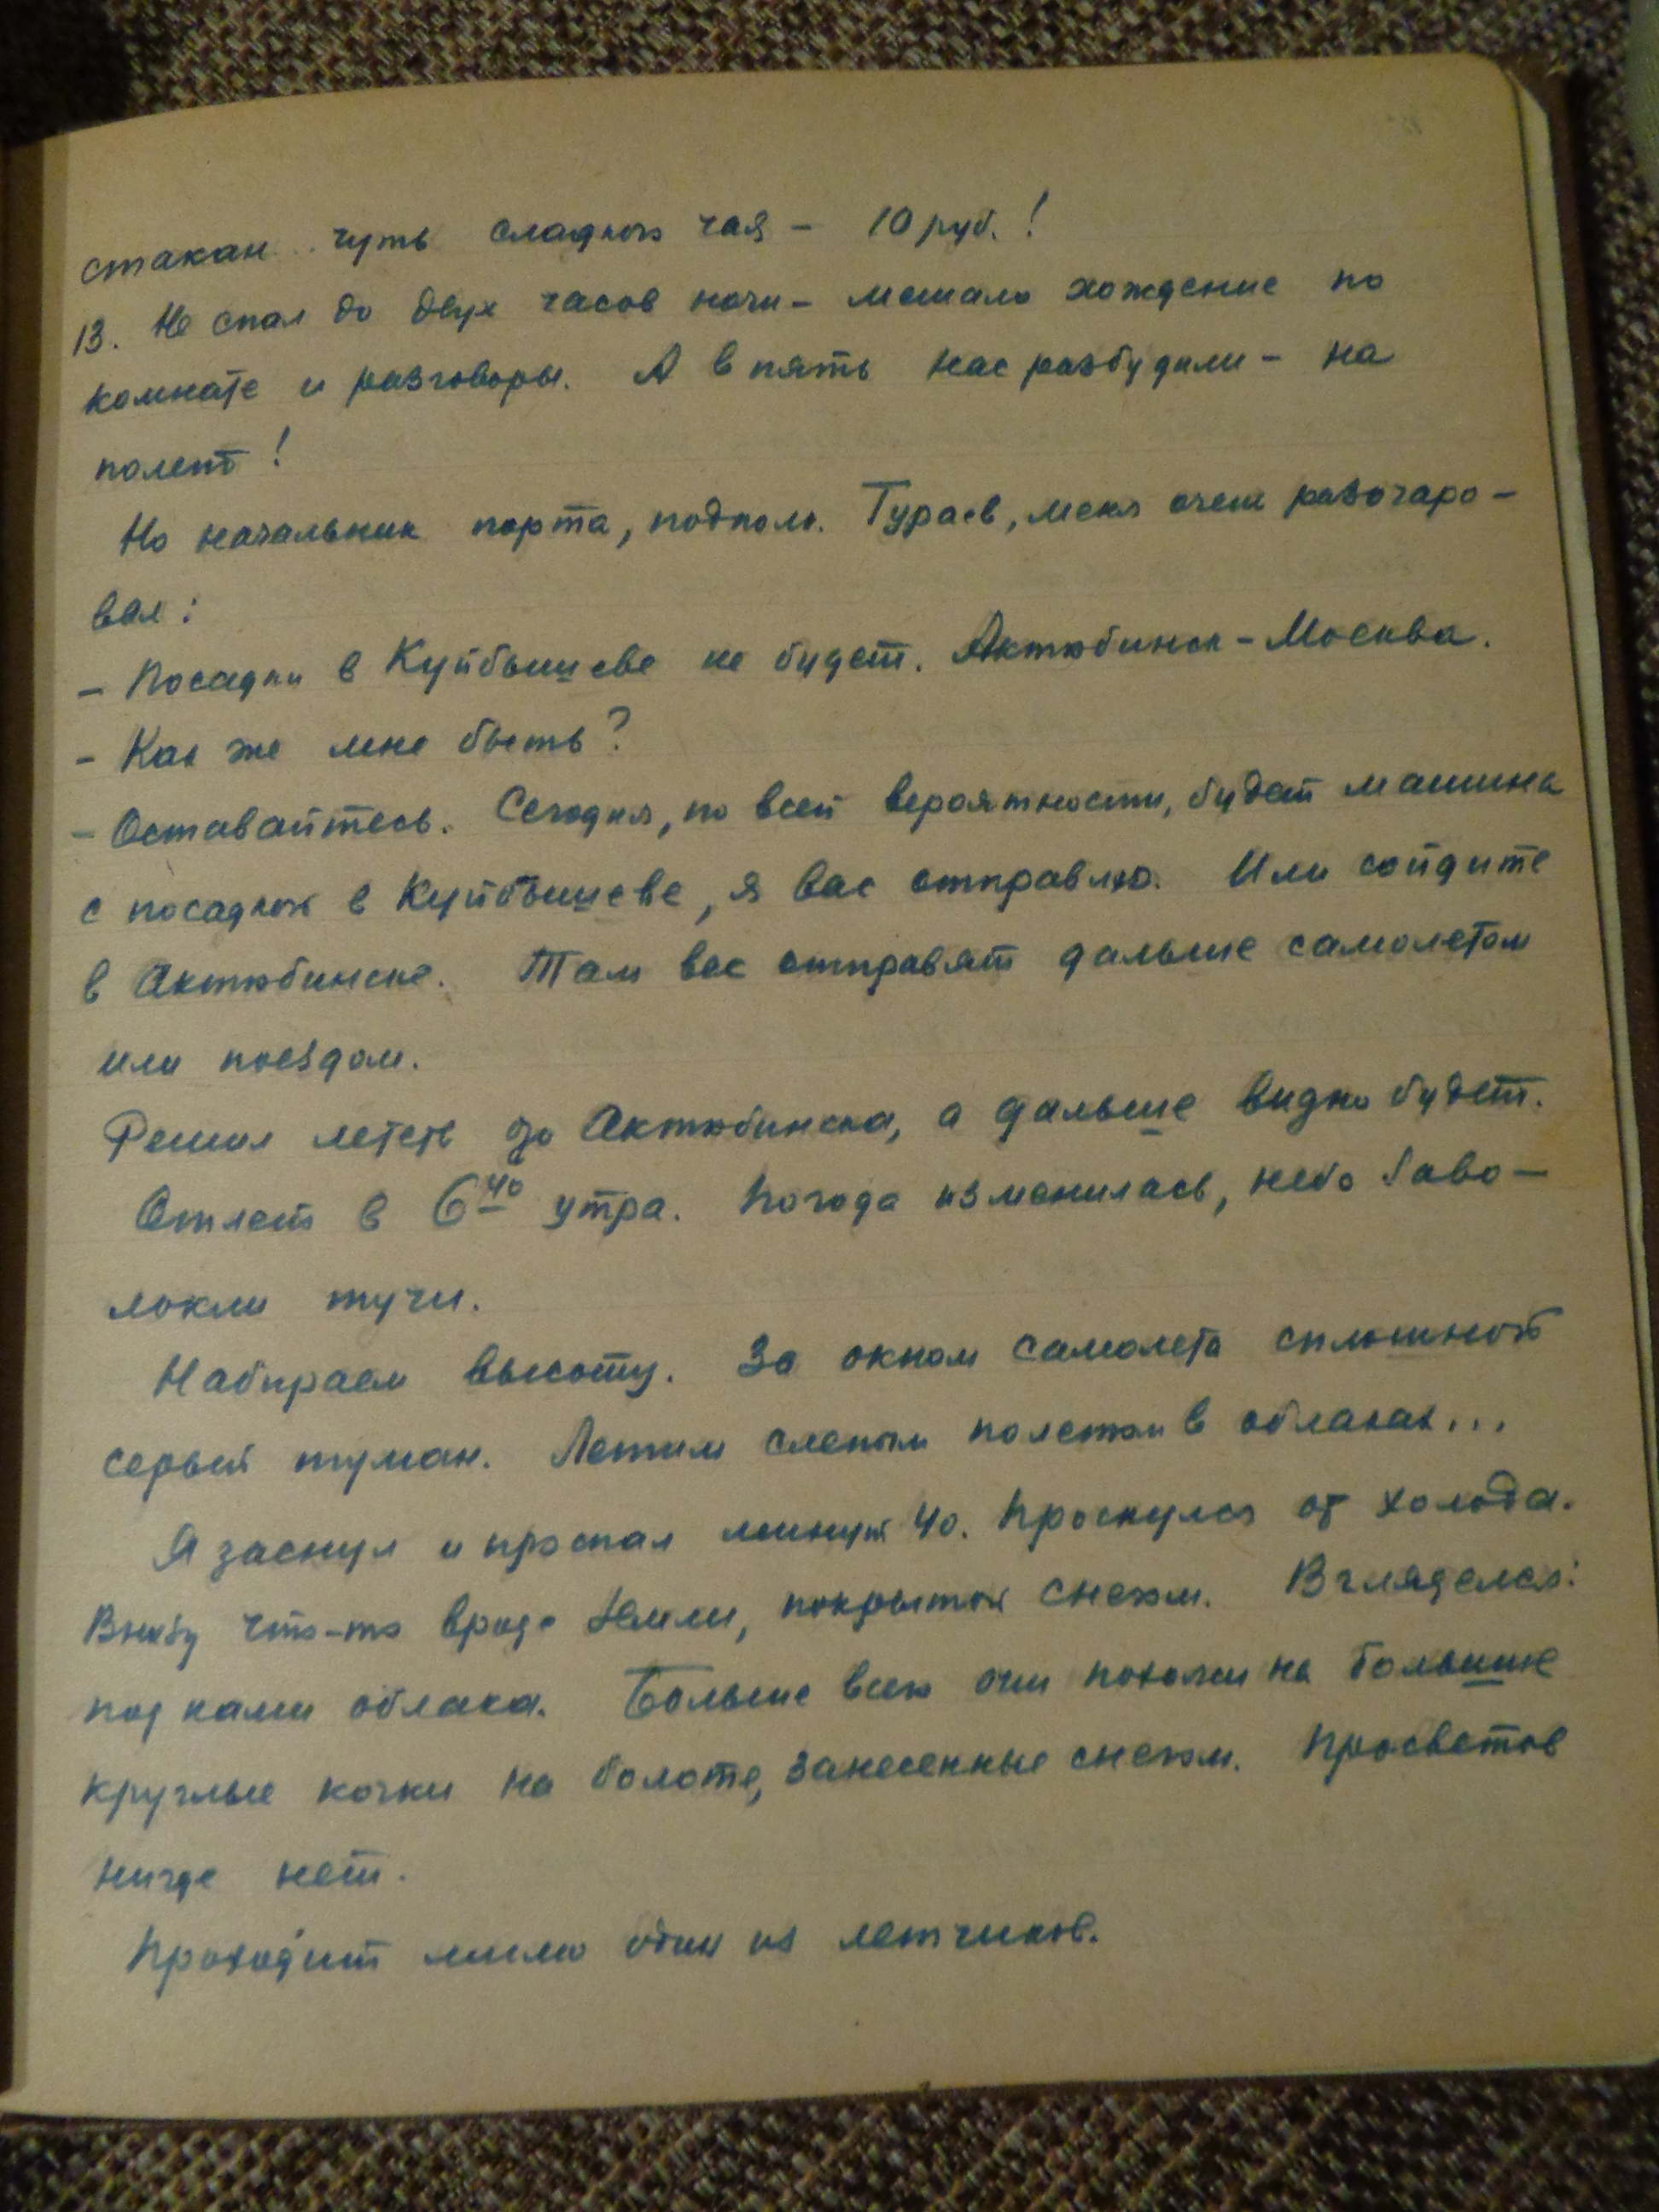 стакан чуть сладкого чая – 10 руб.!
13. Не спал до двух часов ночи – мешало хождение по
комнате и разговоры. А в пять нас разбудили – на
полет!
Но начальник порта, подполк. Тураев, меня очень разочаро-
вал:
– Посадки в Куйбышеве не будет. Актюбинск – Москва.
– Как же мне быть?
– Оставайтесь. Сегодня, по всей вероятности, будет машина
с посадкой в Куйбышеве, я вас отправлю. Или сойдите
в Актюбинске. Там вас отправят дальше самолетом
или поездом.
Решил лететь до Актюбинска, а дальше видно будет.
Отлет в 6⁴⁰ утра. Погода изменилась, небо заво-
локли тучи.
Набираем высоту. За окном самолета сплошной
серый туман. Летим слепым полетом в облаках...
Я заснул и проспал минут 40. Проснулся от холода.
Внизу что-то вроде земли, покрытой снегом. Вгляделся:
под нами облака. Больше всего они похожи на большие
круглые кочки на болоте, занесенные снегом. Просветов
нигде нет.
Проходит мимо один из летчиков.